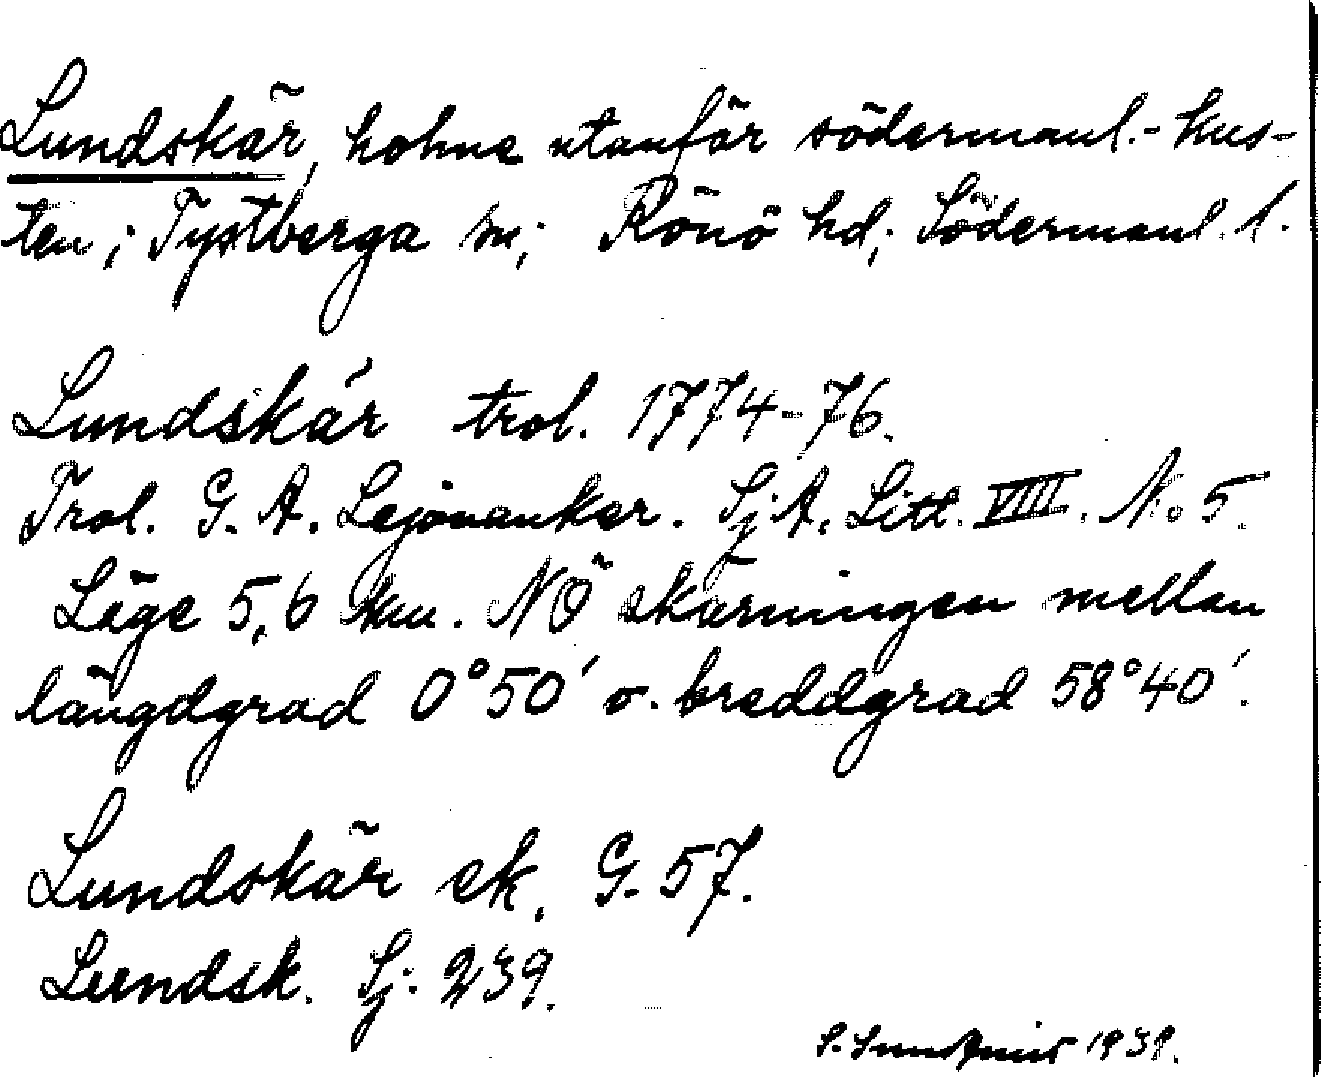 Lundskär, holme utanför södermanl.- kus-
ten; Tystberga sn; Rönö hd; Södermanl. l.
Lundskär trol. 1774-76.
Trol. G. A. Lejonankar. Sj.A. Litt. VIII. No 5.
Läge 5,6 km. NÖ skärningen mellan
längdgrad 0°50′ o. breddgrad 58°40′.
Lundskär ek. G. 57.
Lundsk. Sj. 239.
S. 1939.